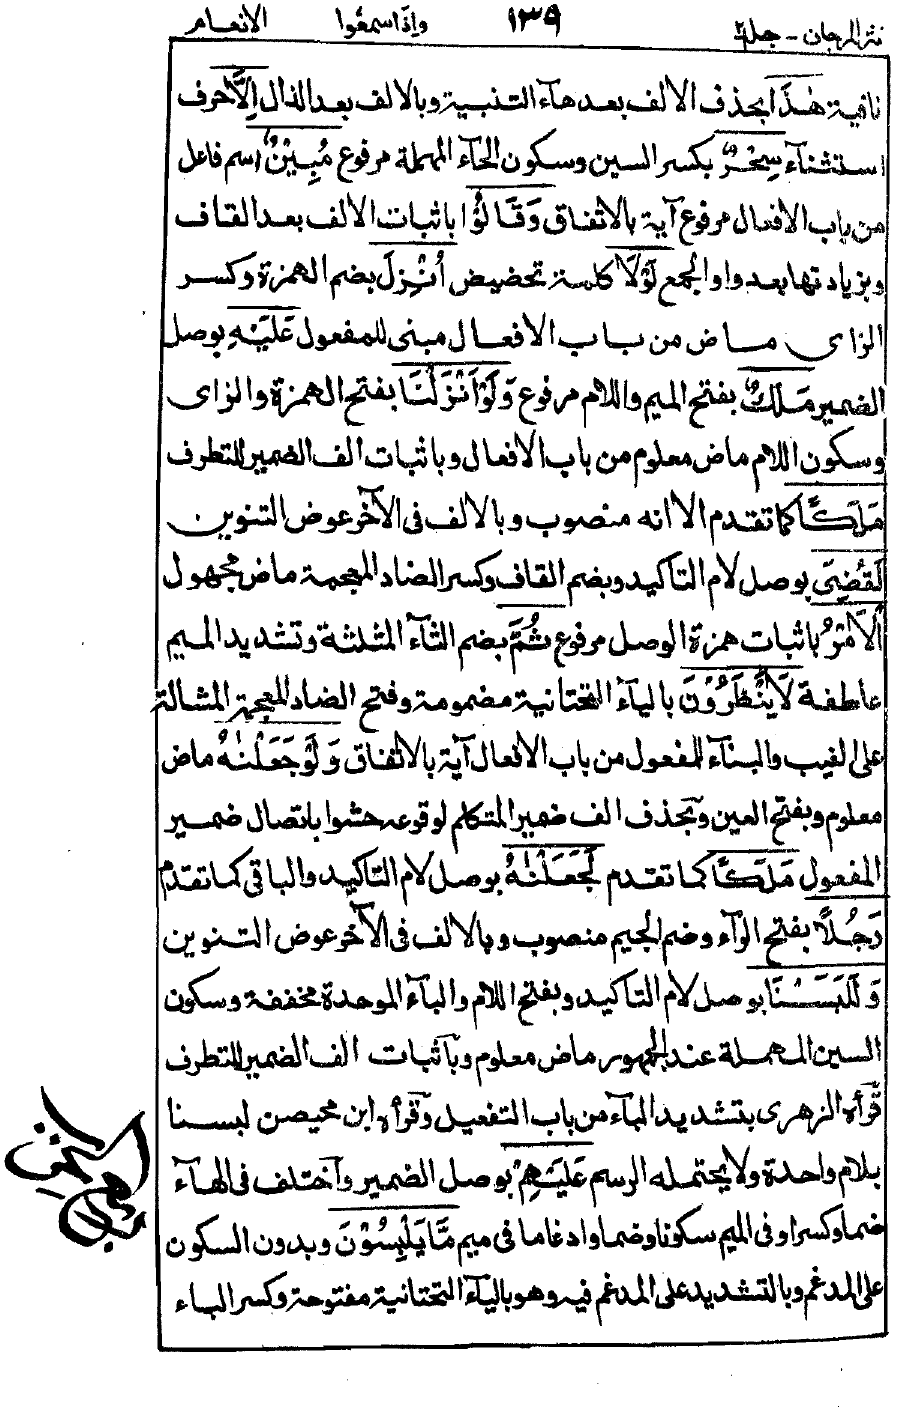 نثر المرجان - جلد ٢ ١٣٩ وإذا سمعوا الانعام
ثانية هٰذَا بحذف الالف بعد هاء التنبية وبالالف بعد الذال اِلَّا حرف
استثناء سِحْرٌ بكسر السين وسكون الحاء المهملة مرفوع مُبِيْنٌ اسم فاعل
من باب الافعال مرفوع آية بالاتفاق وَقَالُوْا باثبات الالف بعد القاف
وبزيادتها بعد واو الجمع لَوْلَا كلمة تحضيض اُنْزِلَ بضم الهمزة وكسر
الزاى ماض من باب الافعال مبنى للمفعول عَلَيْهِ بوصل
الضمير مَلَكٌ بفتح الميم واللام مرفوع وَلَوْ اَنْزَلْنَا بفتح الهمزة والزاى
وسكون اللام ماض معلوم من باب الافعال وباثبات الف الضمير للتطرف
مَلَكًا كما تقدم الا انه منصوب وبالالف فى الآخر عوض التنوين
لَقُضِىَ بوصل لام التاكيد وبضم القاف وكسر الضاد المعجمة ماض مجهول
اَلْاَمْرُ باثبات همزة الوصل مرفوع ثُمَّ بضم الثاء المثلثة وتشديد الميم
عاطفة لَا يُنْظَرُوْنَ بالياء التحتانية مضمومة وفتح الضاد المعجمة المشالة
على الغيب والبناء للمفعول من باب الافعال آية بالاتفاق وَلَوْ جَعَلْنٰهُ ماض
معلوم وبفتح العين وبحذف الف ضمير المتكلم لوقوعه حشوا باتصال ضمير
المفعول مَلَكًا كما تقدم لَجَعَلْنٰهُ بوصل لام التاكيد والباقى كما تقدم
رَجُلًا بفتح الراء وضم الجيم منصوب وبالالف فى الآخر عوض التنوين
وَلَلَبَسْنَا بوصل لام التاكيد وبفتح اللام والباء الموحدة مخففة وسكون
السين المهملة عند الجمهور ماض معلوم وباثبات الف الضمير للتطرف
قرأه الزهرى بتشديد الباء من باب التفعيل وقرأه ابن محيصن لبسنا
بلام واحدة ولا يحتمله الرسم عَلَيْهِمْ بوصل الضمير واختلف فى الهاء
ضما وكسرا وفى الميم سكونا وضما وادغاما فى ميم مَّا يَلْبِسُوْنَ وبدون السكون
على المدغم وبالتشديد على المدغم فيه وهو بالياء التحتانية مفتوحة وكسر الباء